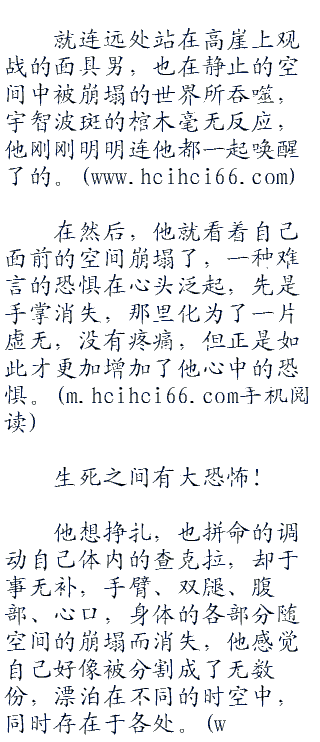 就连远处站在高崖上观
战的面具男，也在静止的空
间中被崩塌的世界所吞噬，
宇智波斑的棺木毫无反应，
他刚刚明明连他都一起唤醒
了的。(www.hcihci66.com)
在然后，他就看着自己
面前的空间崩塌了，一种难
言的恐惧在心头泛起，先是
手掌消失，那里化为了一片
虚无，没有疼痛，但正是如
此才更加增加了他心中的恐
惧。(m.hcihci66.com手机阅
读)
生死之间有大恐怖！
他想挣扎，也拼命的调
动自己体内的查克拉，却于
事无补，手臂、双腿、腹
部、心口，身体的各部分随
空间的崩塌而消失，他感觉
自己好像被分割成了无数
份，漂泊在不同的时空中，
同时存在于各处。(w